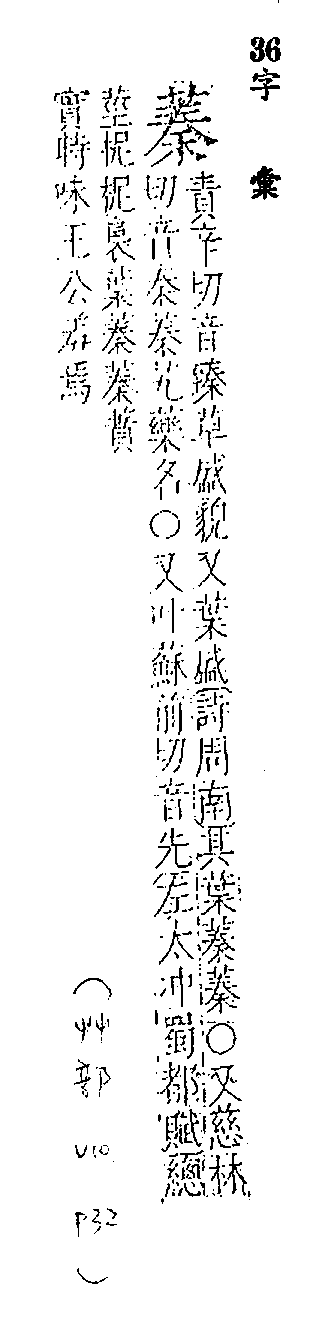 36 字 彙
蓁
責辛切音臻草盛貌又葉盛詩周南其葉蓁蓁○又慈林
切音秦蓁艽藥名○又叶蘇前切音先左太冲蜀都賦總
莖柅柅裛葉蓁蓁蕡
實時味王公羞焉
(艸部 V10 P32)